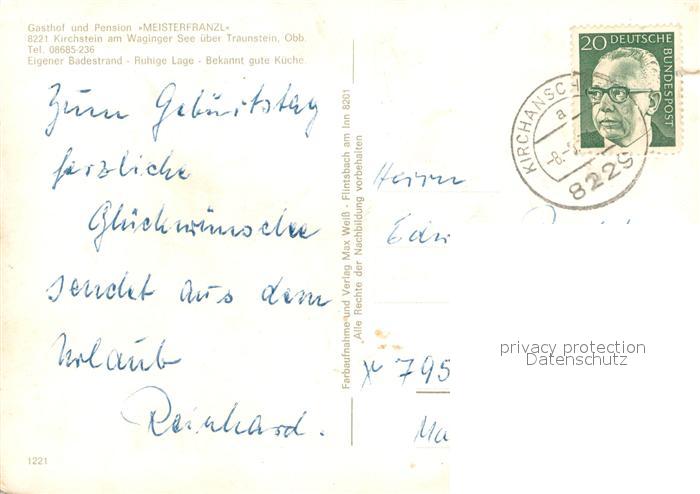 Gasthof und Pension »MEISTERFRANZL«
8221 Kirchstein am Waginger See über Traunstein, Obb.
Tel. 08685-236
Eigener Badestrand - Ruhige Lage - Bekannt gute Küche.
Zum Geburtstag
herzliche
Glückwünsche
sendet aus dem
Urlaub
Reinhard.
1221
Farbaufnahme und Verlag Max Weiß - Flintsbach am Inn 8201
Alle Rechte der Nachbildung vorbehalten
20 DEUTSCHE
BUNDESPOST
KIRCHANSCH
a
-8.-
8229
Herrn
795
privacy protection
Datenschutz